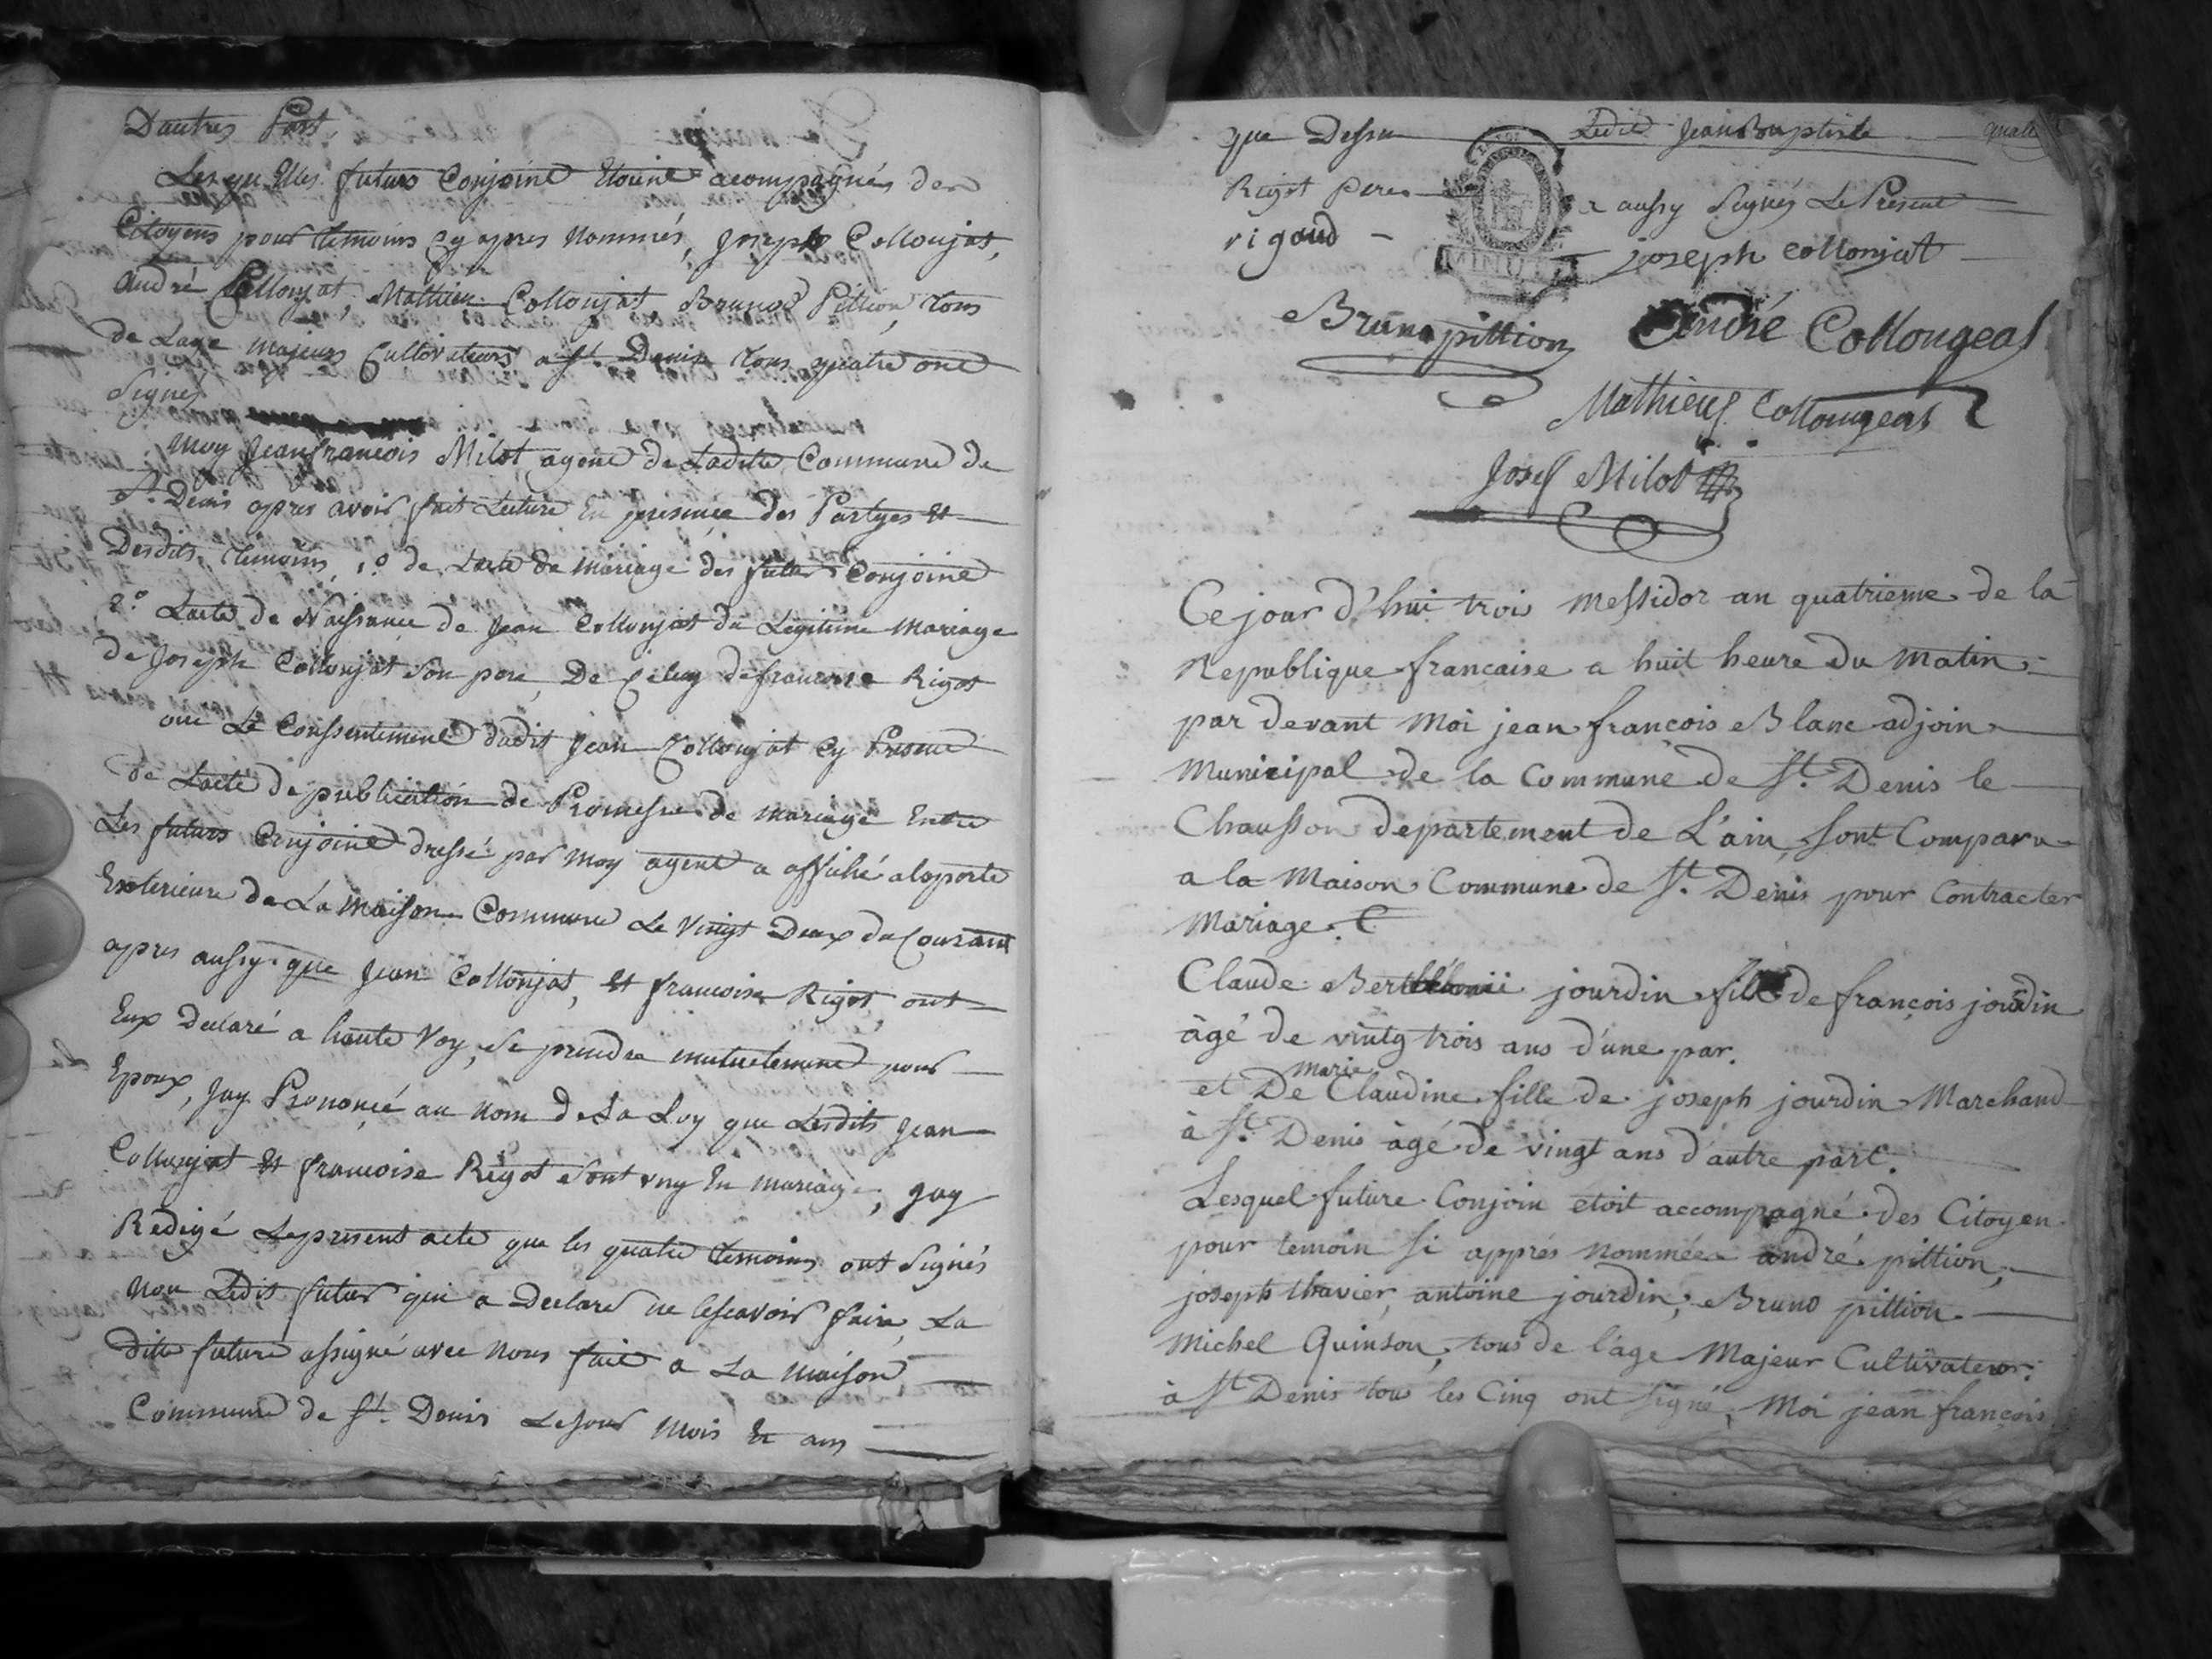 Dautres Part
Lesquelles futurs Conjoint Etoint acompagnés des
Citoyens pour temoins Cy apres Nommés, Joseph Collonjat,
André Collonjat, Mathieu Collonjat, Bruno Pittion, tous
de Lage majeurs Cultivateurs a St. Denis tous quatre ont
Signés
moy Jean francois Milot agent de Ladite Commune de
St. Denis apres avoir fait Lecture En presence des Partyes Et
Desdits temoins, 1.º de Lacte de mariage des futurs Conjoint
2.º Lacte de Naissance de Jean Collonjat du Legitime mariage
de Joseph Collonjat Son pere, De Celuy de francoise Rigot
oui Le Conssentement dudit Jean Collonjat Cy Present
de Lacte de publication de Promesse de mariage Entre
Les futurs Conjoint dressé par moy agent a affiché a laporte
Exterieure de La maison Commune Le Vingt Deux du Courant
apres aussy que Jean Collonjat, Et francoise Rigot, ont
Eux declaré a haute Voy, Se prendre mutuelement pour
Epoux, Jay Prononcé au nom de La Loy que Lesdits Jean
Collonjat Et francoise Rigot Sont uny En mariage, Jay
Redigé Lepresent acte que les quatre temoins ont Signés
non Ledit futur qui a Declaré ne lescavoir faire, La
ditte future assigné avec Nous fait a La maison
Commune de St. Denis Lejour mois Et an
que Dessu Ledit Jean Baptiste
Rigot pere a aussy Signés Le Present
rigaud joseph collonjat
MINUTE
Bruno pittion André Collougeat
Mathieu Collougeat
Josef Milot
Ce jour d'hui trois Messidor an quatrieme de la
Republique francaise a huit heure du matin
par devant Moi jean francois Blanc adjoin
Municipal de la Commune de St. Denis le
Chausson departement de L'ain, Sont Comparu
a la Maison Commune de St. Denis pour Contracter
Mariage.
Claude jourdin fils de françois jourdin
âgé de vintg trois ans d'une par.
marie
et De Claudine fille de joseph jourdin Marchand
à St. Denis âgé de vingt ans d'autre part.
Lesquel future Conjoin etoit accompagné des Citoyen
pour temoin Si apprés nommée andré pittion,
joseph thavier, antoine jourdin, Bruno pittion
Michel Quinson, tous de lâge Majeur Cultivateur
à St Denis tous les Cinq ont signé, Moi jean françois